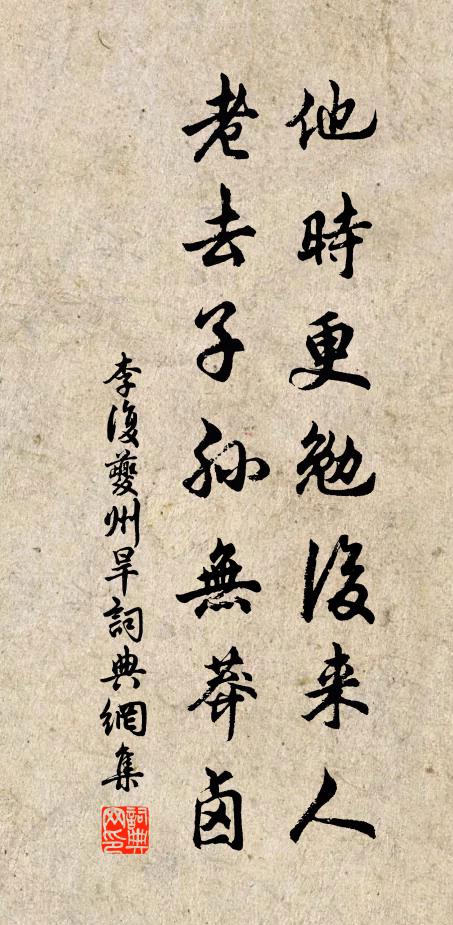 他時更勉後来人
老去子孫無莽鹵
李復夔州旱詞典網集
詞典網印